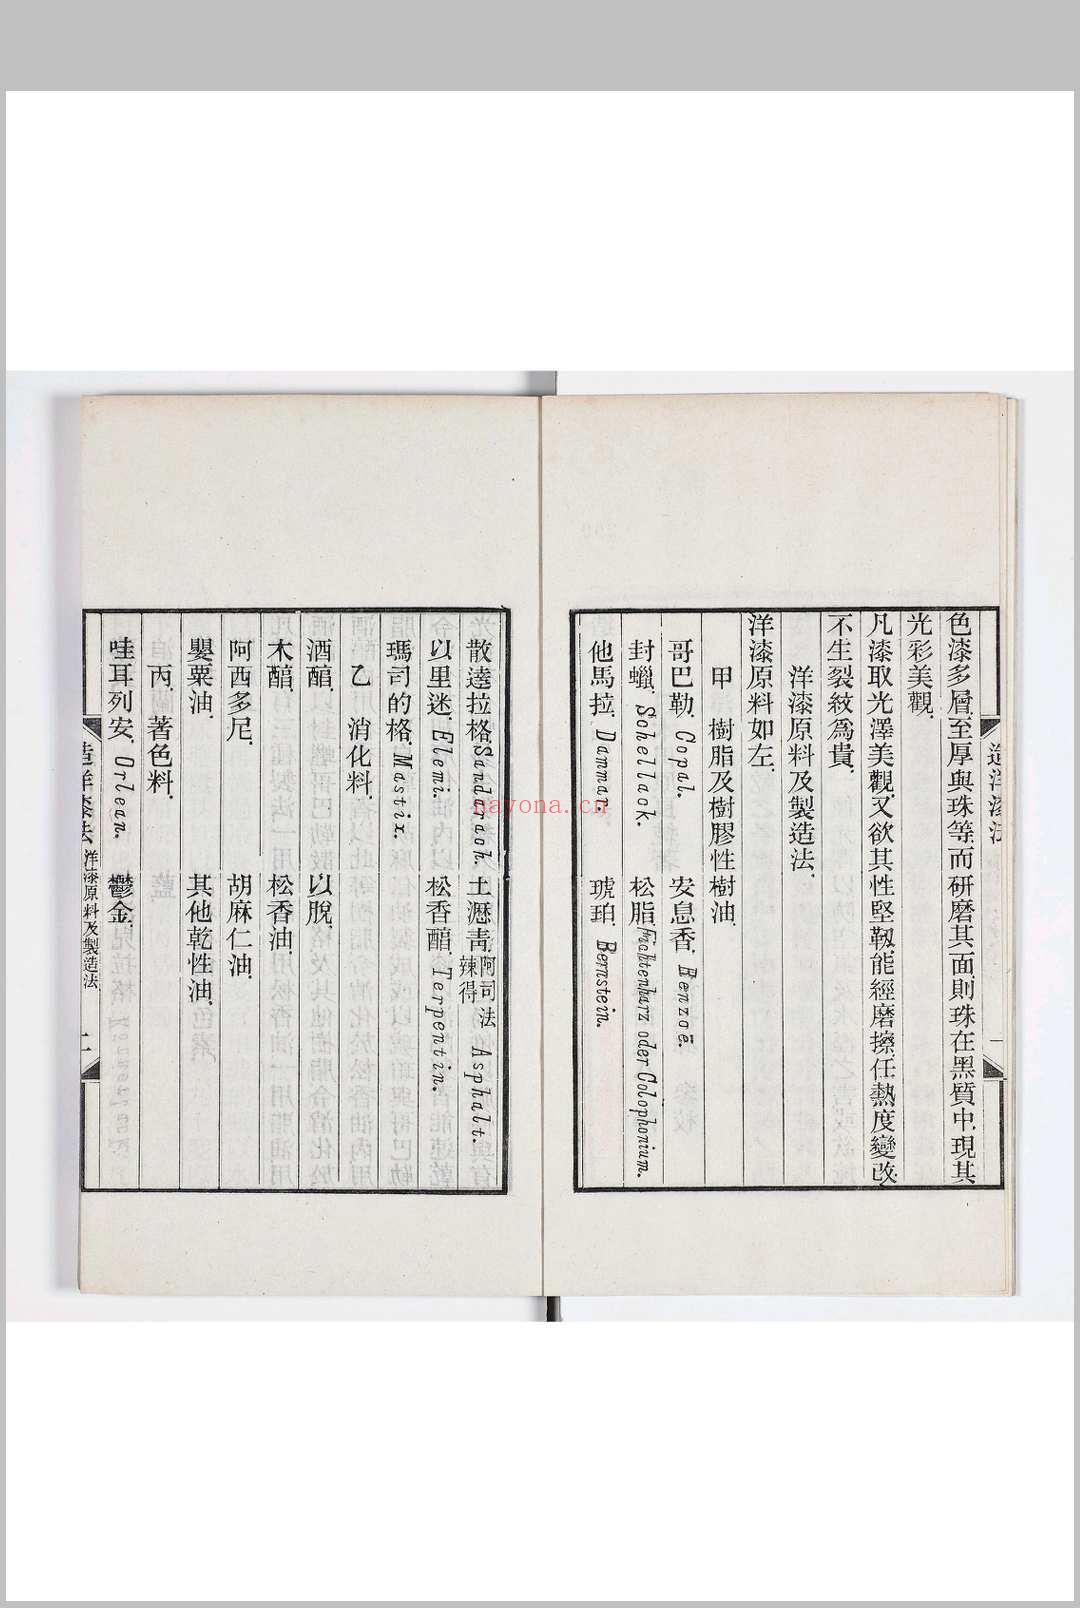 色漆多層.至厚與珠等.而研磨其面.則珠在黑質中.現其
光彩美觀.
凡漆取光澤美觀.又欲其性堅韌.能經磨擦.任熱度變改.
不生裂紋爲貴.
洋漆原料及製造法.
洋漆原料如左.
甲 樹脂及樹膠性樹油.
哥巴勒. Copal. 安息香. Benzoë.
封蠟. Schellack. 松脂. Fichtenharz oder Colophonium.
他馬拉. Dammar. 琥珀. Bernstein.
造洋漆法
一
散達拉格. Sandarach. 土瀝靑. 阿司法辣得 Asphalt.
以里迷. Elemi. 松香䤈. Terpentin.
瑪司的格. Mastix.
乙 消化料.
酒䤈. 以脫.
木䤈. 松香油.
阿西多尼. 胡麻仁油.
罌粟油. 其他乾性油.
丙. 著色料.
哇耳列安. Orlean. 鬱金.
造洋漆法 洋漆原料及製造法
nayona.cn